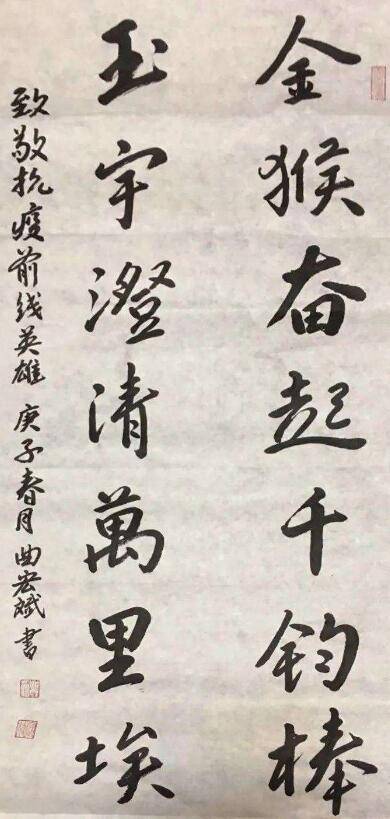 金猴奋起千钧棒
玉宇澄清萬里埃
致敬抗疫前线英雄 庚子春月 曲宏斌書